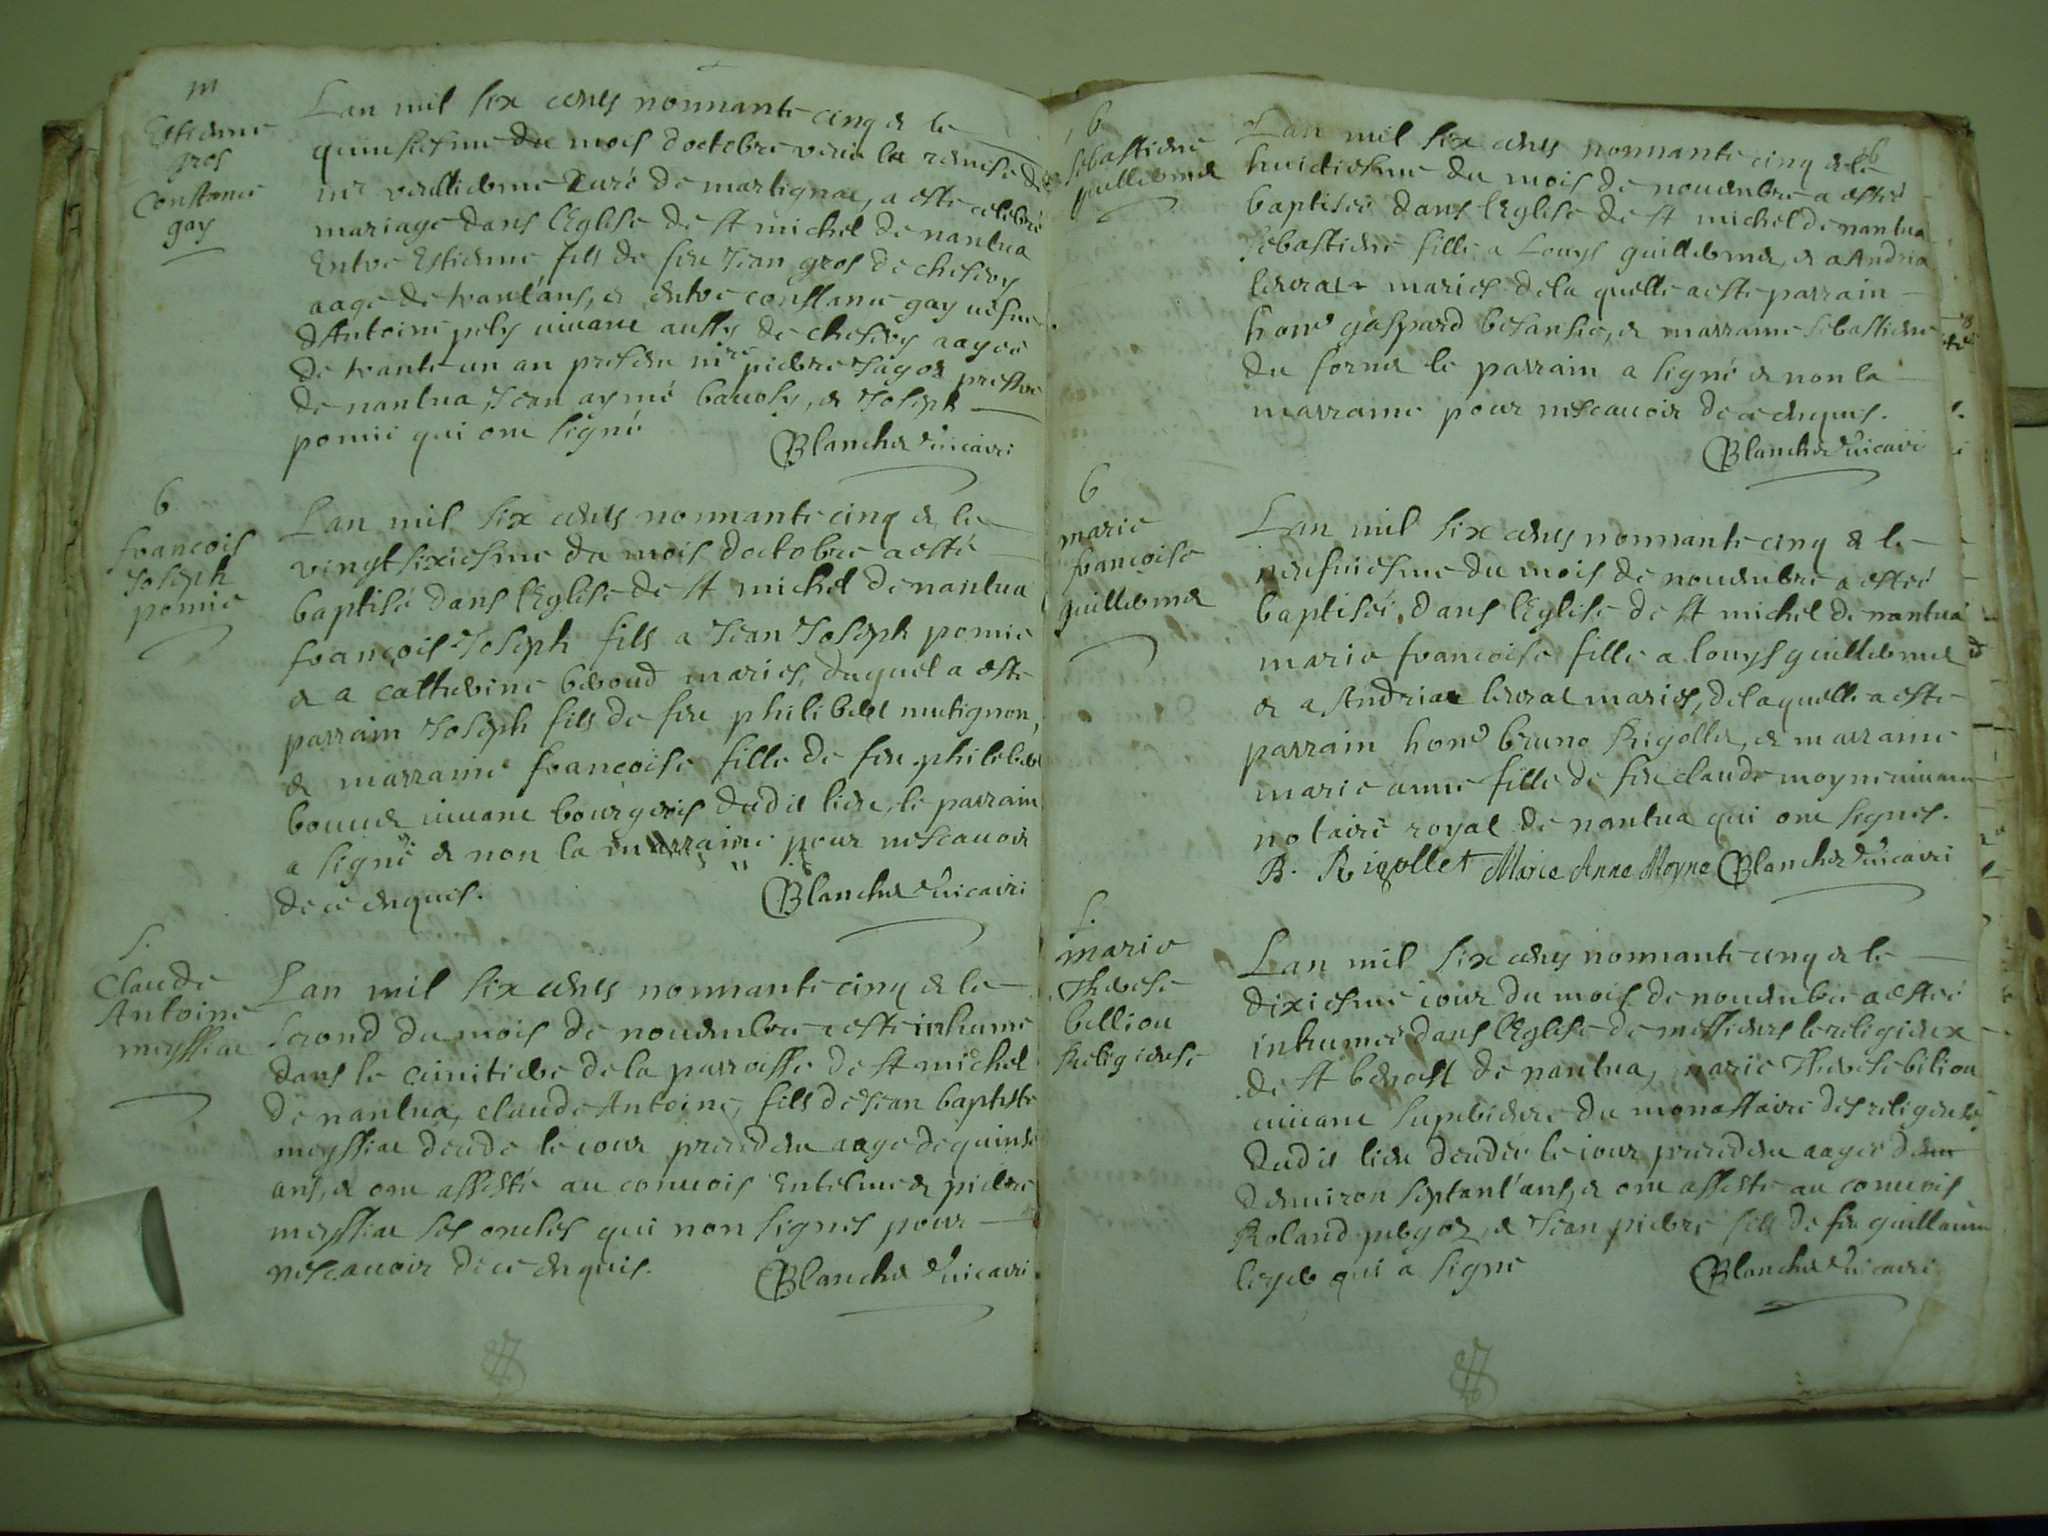 m
Estienne
gros
Constance
gay
Lan mil six cents nonnante cinq & le
quinsiesme du mois doctobre veüe la remise de
mr curé de martignac, a esté celebré
mariage dans lEglise de st michel de nantua
Entre Estienne fils de feu Jean gros de chesery
aagé de trant'ans, & entre constance gay vefue
dAntoine pely viuant aussy de chesery aagée
de trante un an presens mre pierre Jagot prestre
de nantua, Jean aymé bauoly, & Joseph
pomie qui ont signé
Blanchet vicaire
b
francois
Joseph
pomie
Lan mil six cents nonnante cinq & le
vingt sixiesme du mois doctobre a esté
baptisé dans lEglise de st michel de nantua
françois Joseph fils a Jean Joseph pomie
& a Catherine beroud mariés, duquel a esté
parrain Joseph fils de feu philibert mutignon,
& marraine francoise fille de feu philibert
viuant bourgeois dudit lieu, le parrain
a signé & non la marraine pour nescauoir
de ce enquis.
Blanchet vicaire
s.
Claude
Antoine
meyssiat
Lan mil six cents nonnante cinq & le
second du mois de nouembre a esté inhumé
dans le cimitiere de la parroisse de st michel
de nantua, claude Antoine, fils de Jean baptiste
meyssiat decede le iour precedent aagé de quinse
ans, & ont assisté au conuois Entelme & pierre
meyssiat ses oncles qui non signés pour
nescauoir de ce enquis.
Blanchet vicaire
b
sebastiene
guillermet
Lan mil six cents nonnante cinq & le
huictiesme du mois de nouembre a estée
baptisée dans lEglise de st michel de nantua
sebastiene fille a Louys guillermet, & a Andria
leurat mariés de la quelle a esté parrain
hone gaspard besansio, & marraine sebastiene
du fornet le parrain a signé & non la
marraine pour nescauoir de ce enquis.
Blanchet vicaire
b
marie
francoise
guillermet
Lan mil six cents nonnante cinq & le
neufuiesme du mois de nouembre a estée
baptisée dans lEglise de st michel de nantua
marie francoise fille a louys guillermet
& a Andria leurat mariés, de laquelle a esté
parrain hone bruno Rigollet, & marraine
marie anne fille de feu claude moyne viuant
notaire royal de nantua qui ont signés.
B. Rigollet Marie Anne Moyne Blanchet vicaire
s.
marie
Therese
billion
Religieuse
Lan mil six cents nonnante cinq & le
dixiesme iour du mois de nouembre a estée
inhumée dans lEglise de messieurs le religieux
de st benoist de nantua, marie Therese bilion
viuant superieure du monastaire des religieuses
dudit lieu decedée le iour precedent aagée
denuiron septant'ans, & ont assisté au conuois
Roland pergoz, & Jean pierre fils de feu guillaume
qui a signé
Blanchet vicaire